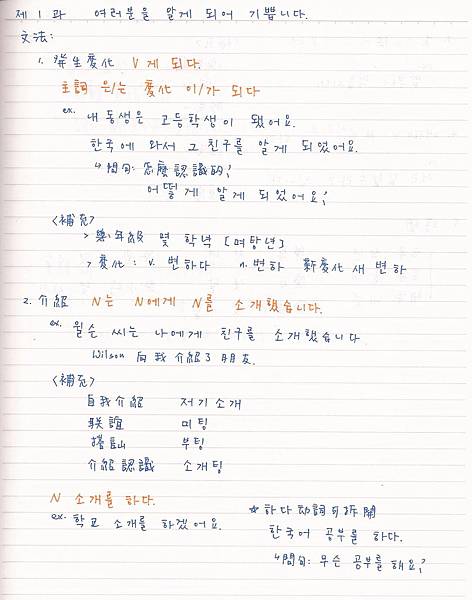 제 1 과 여러분을 알게 되어 기쁩니다.
文法:
1. 發生變化 V 게 되다.
主詞 은/는 變化 이/가 되다
ex. 내 동생은 고등학생이 됐어요.
한국에 와서 그 친구를 알게 되었어요.
↳問句: 怎麼認識的?
어떻게 알게 되었어요?
<補充>
> 幾年級 몇 학년 [며탕년]
> 變化 : v. 변하다 n. 변하 新變化 새 변하
2. 介紹 N는 N에게 N를 소개했습니다.
ex. 윌슨 씨는 나에게 친구를 소개했습니다
Wilson 向我介紹了朋友.
<補充>
自我介紹 저기소개
联誼 미팅
搭訕 부팅
介紹認識 소개팅
N 소개를 하다.
ex. 학교 소개를 하겠어요.
☆ 하다 动詞可拆開
한국어 공부를 하다.
↳問句: 무슨 공부를 해요?